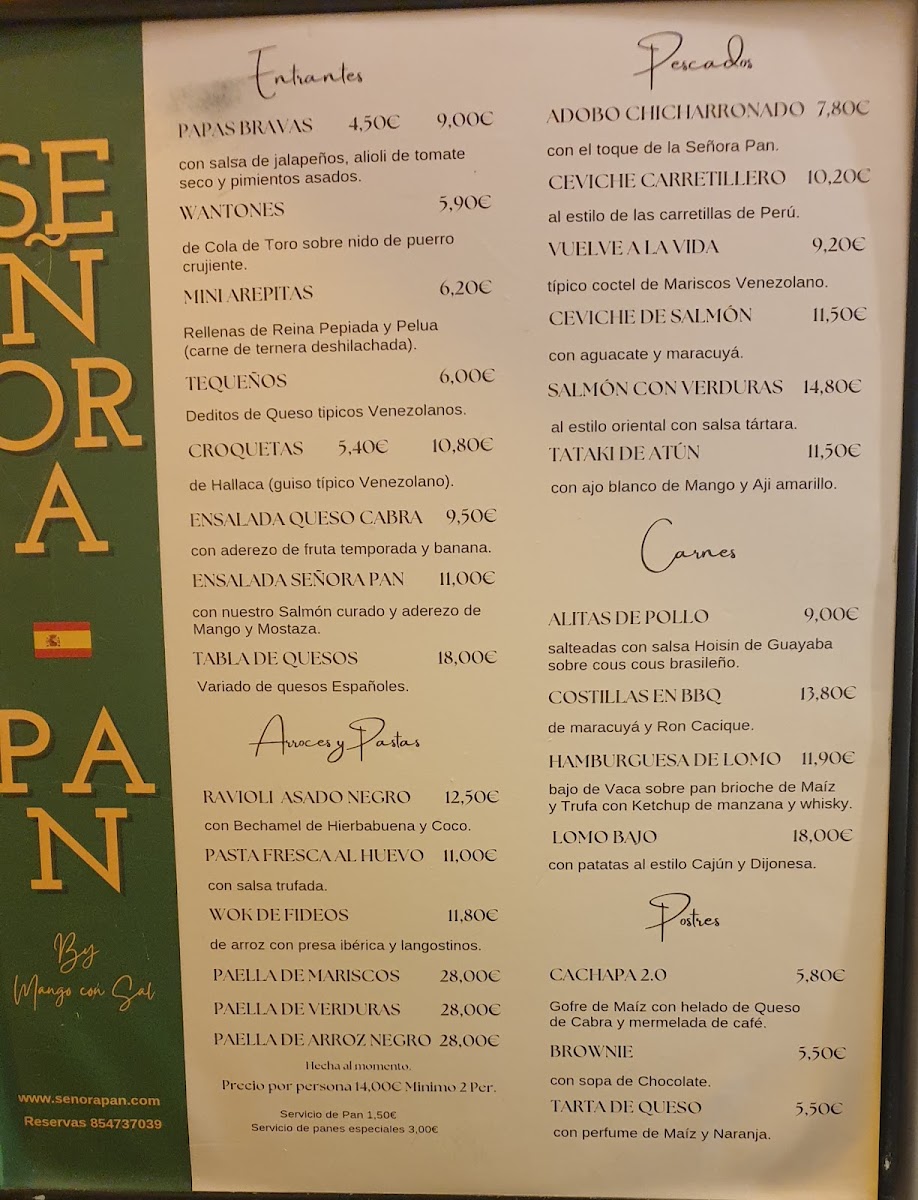 SE
Ñ
OR
A
PA
N
By
Mango con Sal
www.senorapan.com
Reservas 854737039
Entrantes
PAPAS BRAVAS 4,50€ 9,00€
con salsa de jalapeños, alioli de tomate
seco y pimientos asados.
WANTONES 5,90€
de Cola de Toro sobre nido de puerro
crujiente.
MINI AREPITAS 6,20€
Rellenas de Reina Pepiada y Pelua
(carne de ternera deshilachada).
TEQUEÑOS 6,00€
Deditos de Queso tipicos Venezolanos.
CROQUETAS 5,40€ 10,80€
de Hallaca (guiso típico Venezolano).
ENSALADA QUESO CABRA 9,50€
con aderezo de fruta temporada y banana.
ENSALADA SEÑORA PAN 11,00€
con nuestro Salmón curado y aderezo de
Mango y Mostaza.
TABLA DE QUESOS 18,00€
Variado de quesos Españoles.
Arroces y Pastas
RAVIOLI ASADO NEGRO 12,50€
con Bechamel de Hierbabuena y Coco.
PASTA FRESCA AL HUEVO 11,00€
con salsa trufada.
WOK DE FIDEOS 11,80€
de arroz con presa ibérica y langostinos.
PAELLA DE MARISCOS 28,00€
PAELLA DE VERDURAS 28,00€
PAELLA DE ARROZ NEGRO 28,00€
Hecha al momento.
Precio por persona 14,00€ Minimo 2 Per.
Servicio de Pan 1,50€
Servicio de panes especiales 3,00€
Pescados
ADOBO CHICHARRONADO 7,80€
con el toque de la Señora Pan.
CEVICHE CARRETILLERO 10,20€
al estilo de las carretillas de Perú.
VUELVE A LA VIDA 9,20€
típico coctel de Mariscos Venezolano.
CEVICHE DE SALMÓN 11,50€
con aguacate y maracuyá.
SALMÓN CON VERDURAS 14,80€
al estilo oriental con salsa tártara.
TATAKI DE ATÚN 11,50€
con ajo blanco de Mango y Aji amarillo.
Carnes
ALITAS DE POLLO 9,00€
salteadas con salsa Hoisin de Guayaba
sobre cous cous brasileño.
COSTILLAS EN BBQ 13,80€
de maracuyá y Ron Cacique.
HAMBURGUESA DE LOMO 11,90€
bajo de Vaca sobre pan brioche de Maíz
y Trufa con Ketchup de manzana y whisky.
LOMO BAJO 18,00€
con patatas al estilo Cajún y Dijonesa.
Postres
CACHAPA 2.0 5,80€
Gofre de Maíz con helado de Queso
de Cabra y mermelada de café.
BROWNIE 5,50€
con sopa de Chocolate.
TARTA DE QUESO 5,50€
con perfume de Maíz y Naranja.